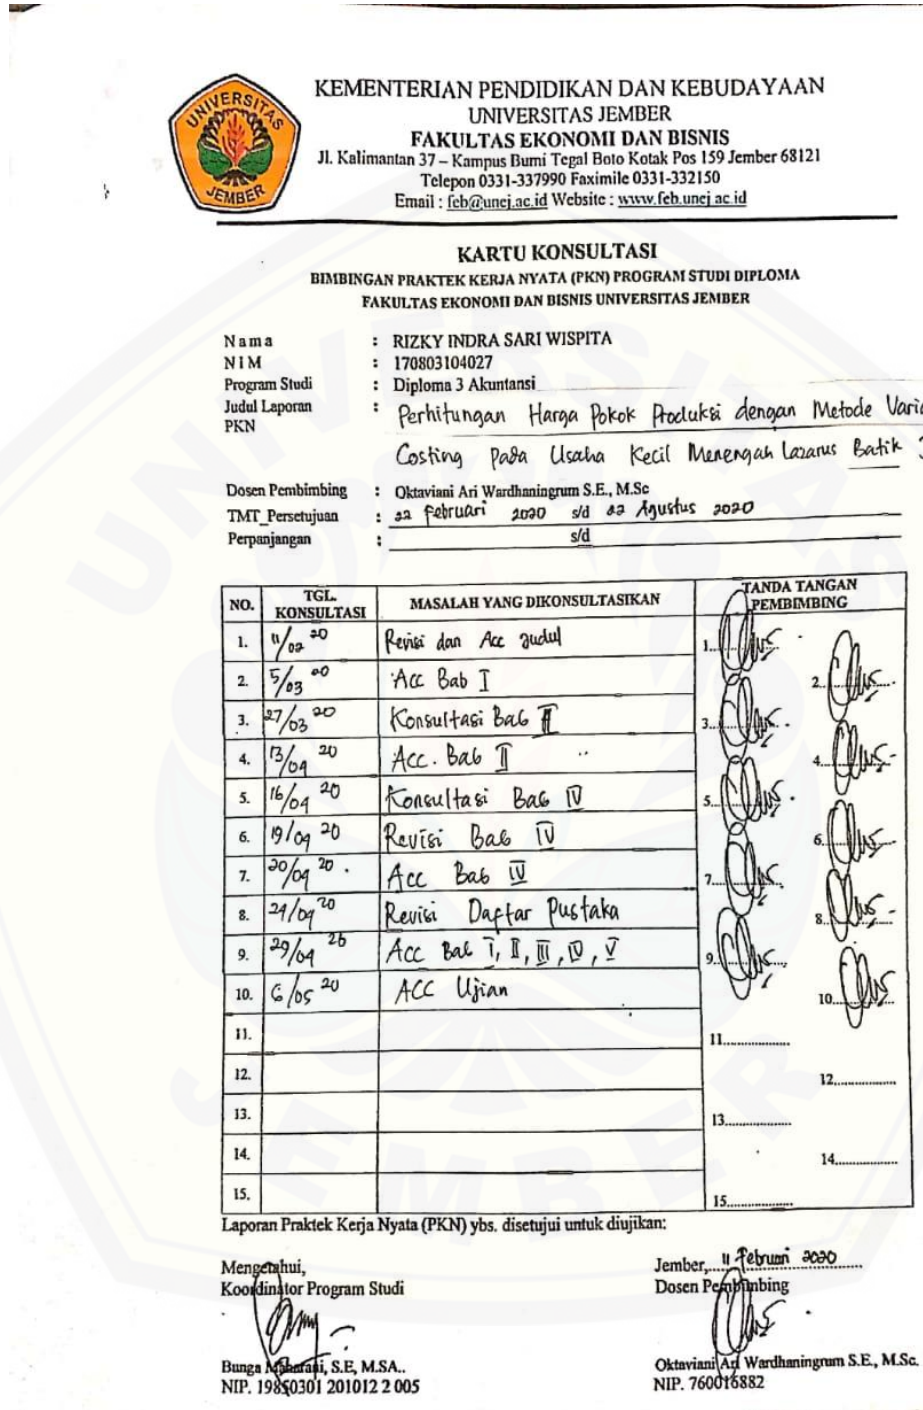 UNIVERSITAS
JEMBER
KEMENTERIAN PENDIDIKAN DAN KEBUDAYAAN
UNIVERSITAS JEMBER
FAKULTAS EKONOMI DAN BISNIS
Jl. Kalimantan 37 – Kampus Bumi Tegal Boto Kotak Pos 159 Jember 68121
Telepon 0331-337990 Faximile 0331-332150
Email : feb@unej.ac.id Website : www.feb.unej.ac.id
KARTU KONSULTASI
BIMBINGAN PRAKTEK KERJA NYATA (PKN) PROGRAM STUDI DIPLOMA
FAKULTAS EKONOMI DAN BISNIS UNIVERSITAS JEMBER
Nama : RIZKY INDRA SARI WISPITA
NIM : 170803104027
Program Studi : Diploma 3 Akuntansi
Judul Laporan PKN : Perhitungan Harga Pokok Produksi dengan Metode Varia
Costing pada Usaha Kecil Menengah Lazarus Batik
Dosen Pembimbing : Oktaviani Ari Wardhaningrum S.E., M.Sc
TMT_Persetujuan : 22 Februari 2020 s/d 22 Agustus 2020
Perpanjangan : s/d
NO. TGL. KONSULTASI MASALAH YANG DIKONSULTASIKAN TANDA TANGAN PEMBIMBING
1. 11/02 20 Revisi dan Acc Judul 1.
2. 5/03 20 Acc Bab I 2.
3. 27/03 20 Konsultasi Bab II 3.
4. 13/04 20 Acc. Bab II 4.
5. 16/04 20 Konsultasi Bab IV 5.
6. 19/04 20 Revisi Bab IV 6.
7. 20/04 20 Acc Bab IV 7.
8. 24/04 20 Revisi Daftar Pustaka 8.
9. 29/04 20 Acc Bab I, II, III, IV, V 9.
10. 6/05 20 ACC Ujian 10.
11. 11.
12. 12.
13. 13.
14. 14.
15. 15.
Laporan Praktek Kerja Nyata (PKN) ybs. disetujui untuk diujikan:
Mengetahui,
Koordinator Program Studi
Bunga Maharani, S.E, M.SA..
NIP. 19850301 201012 2 005
Jember, 11 Februari 2020
Dosen Pembimbing
Oktaviani Ari Wardhaningrum S.E., M.Sc.
NIP. 760016882